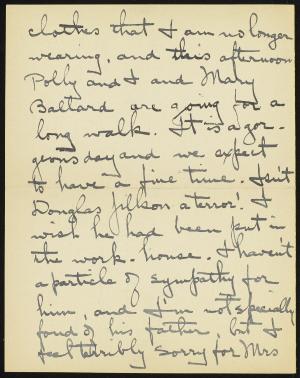 clothes that I am no longer
wearing, and this afternoon
Polly and I and Mary
Ballard are going for a
long walk. It is a gor-
geous day and we expect
to have a fine time. Isn't
Douglas Jillson a terror! I
wish he had been put in
the work-house. I haven't
a particle of sympathy for
him, and I'm not specially
fond of his father, but I
feel terribly sorry for Mrs